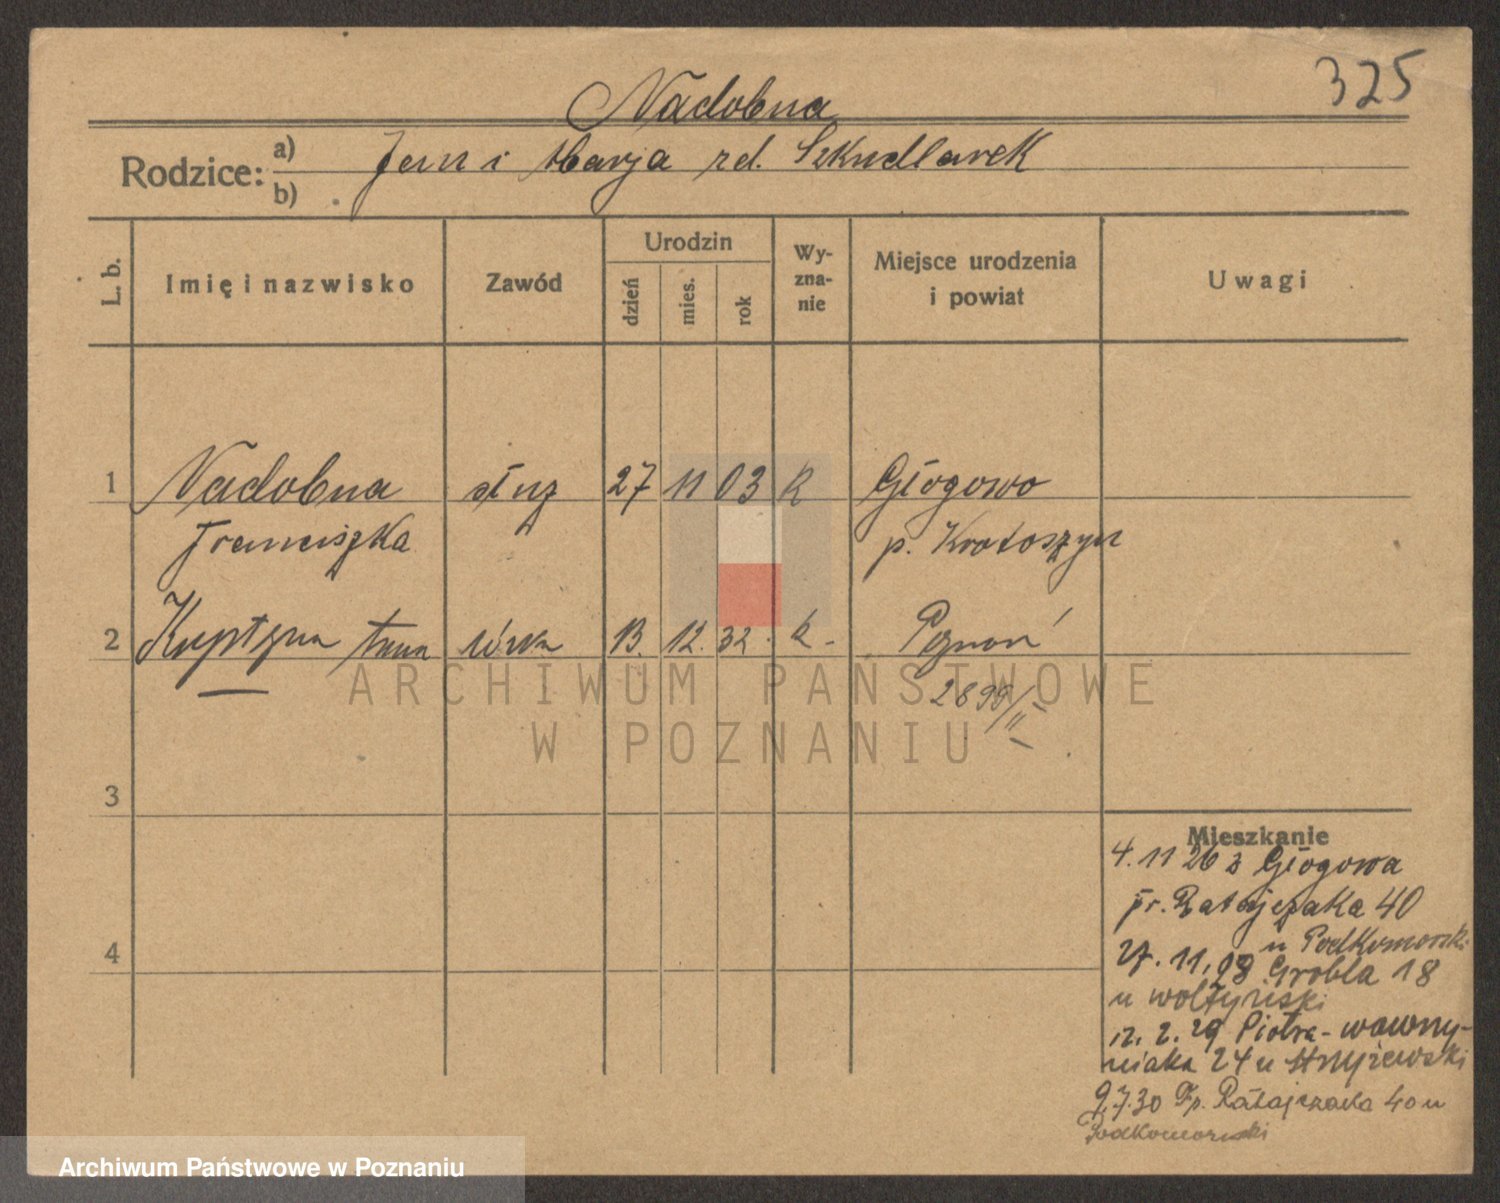 325
Nadobna
Rodzice: a) Jan i Marja zd. Szkudlarek
b)
L. b. Imię i nazwisko Zawód Urodzin dzień mies. rok Wyznanie Miejsce urodzenia i powiat Uwagi
1 Nadobna służ 27 11 03 k Głogowo
Franciszka p. Krotoszyn
2 Krystyna Anna córka 13. 12. 32. k - Poznań
2899/II
3
Mieszkanie
4. 11 26 z Głogowa
fr. Ratajczaka 40
u Podkomorski
27. 11. 28 Grobla 18
u Wołyński
12. 2. 29 Piotra-wawrzy-
niaka 24 u
9.7.30 Fr. Ratajczaka 40 u
Podkomorski
4
ARCHIWUM PAŃSTWOWE
W POZNANIU
Archiwum Państwowe w Poznaniu